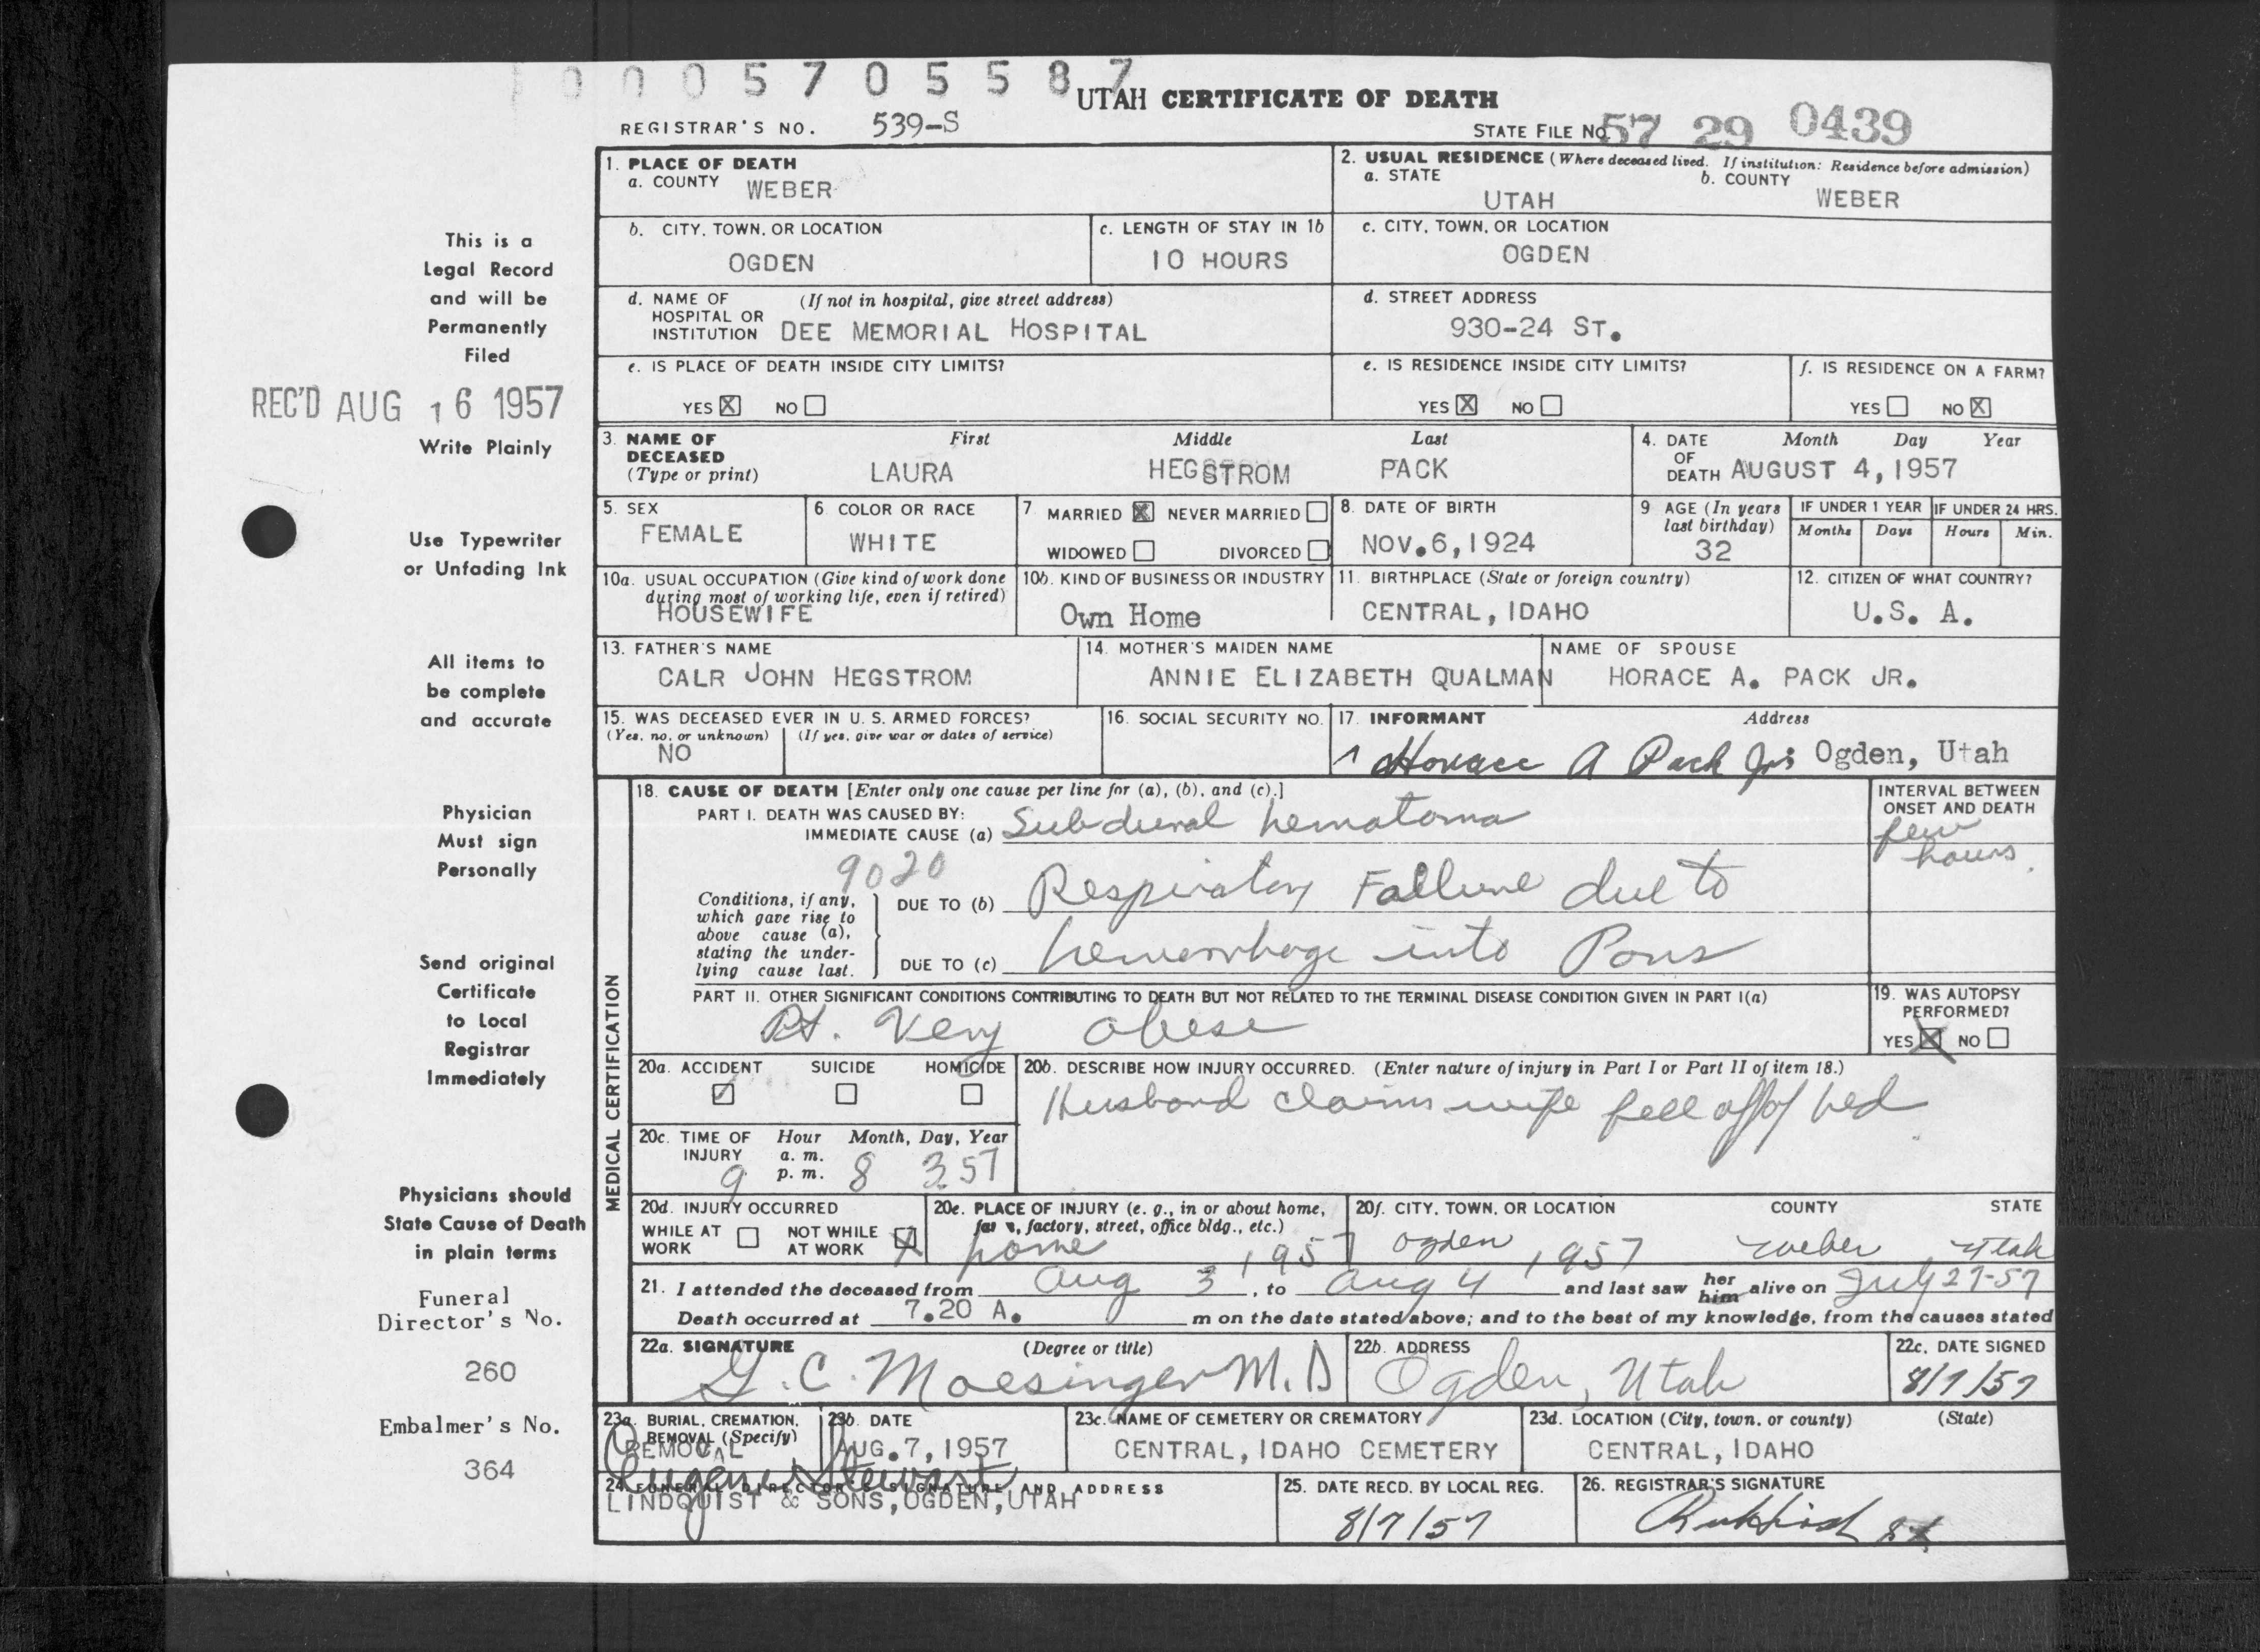 0005705587
UTAH CERTIFICATE OF DEATH
REGISTRAR'S NO. 539-S
STATE FILE NO. 57 29 0439
1. PLACE OF DEATH
a. COUNTY WEBER
2. USUAL RESIDENCE (Where deceased lived. If institution: Residence before admission)
a. STATE UTAH b. COUNTY WEBER
b. CITY, TOWN, OR LOCATION OGDEN
c. LENGTH OF STAY IN 1b 10 HOURS
c. CITY, TOWN, OR LOCATION OGDEN
d. NAME OF HOSPITAL OR INSTITUTION (If not in hospital, give street address) DEE MEMORIAL HOSPITAL
d. STREET ADDRESS 930-24 ST.
e. IS PLACE OF DEATH INSIDE CITY LIMITS? YES X NO
e. IS RESIDENCE INSIDE CITY LIMITS? YES X NO
f. IS RESIDENCE ON A FARM? YES NO X
3. NAME OF DECEASED (Type or print) First LAURA Middle HEGSTROM Last PACK
4. DATE OF DEATH Month Day Year AUGUST 4, 1957
5. SEX FEMALE
6 COLOR OR RACE WHITE
7 MARRIED X NEVER MARRIED
WIDOWED DIVORCED
8. DATE OF BIRTH NOV.6,1924
9 AGE (In years last birthday) 32
IF UNDER 1 YEAR Months Days
IF UNDER 24 HRS. Hours Min.
10a. USUAL OCCUPATION (Give kind of work done during most of working life, even if retired) HOUSEWIFE
10b. KIND OF BUSINESS OR INDUSTRY Own Home
11. BIRTHPLACE (State or foreign country) CENTRAL, IDAHO
12. CITIZEN OF WHAT COUNTRY? U.S. A.
13. FATHER'S NAME CALR JOHN HEGSTROM
14. MOTHER'S MAIDEN NAME ANNIE ELIZABETH QUALMAN
NAME OF SPOUSE HORACE A. PACK JR.
15. WAS DECEASED EVER IN U. S. ARMED FORCES?
(Yes, no, or unknown) (If yes, give war or dates of service)
NO
16. SOCIAL SECURITY NO.
17. INFORMANT Address
Horace A Pack Jr. Ogden, Utah
MEDICAL CERTIFICATION
18. CAUSE OF DEATH [Enter only one cause per line for (a), (b), and (c).]
INTERVAL BETWEEN ONSET AND DEATH
PART I. DEATH WAS CAUSED BY:
IMMEDIATE CAUSE (a) Subdural hematoma
few hours
9020
Conditions, if any, which gave rise to above cause (a), stating the underlying cause last.
DUE TO (b) Respiratory Failure due to
DUE TO (c) hemorrhage into Pons
PART II. OTHER SIGNIFICANT CONDITIONS CONTRIBUTING TO DEATH BUT NOT RELATED TO THE TERMINAL DISEASE CONDITION GIVEN IN PART I(a)
Pt. Very obese
19. WAS AUTOPSY PERFORMED? YES X NO
20a. ACCIDENT SUICIDE HOMICIDE
20b. DESCRIBE HOW INJURY OCCURRED. (Enter nature of injury in Part I or Part II of item 18.)
Husband claims wife fell off of bed
20c. TIME OF INJURY Hour a. m. p. m. Month, Day, Year
9 8 3 57
20d. INJURY OCCURRED
WHILE AT WORK NOT WHILE AT WORK X
20e. PLACE OF INJURY (e. g., in or about home, farm, factory, street, office bldg., etc.)
home
20f. CITY, TOWN, OR LOCATION COUNTY STATE
Ogden Weber Utah
21. I attended the deceased from Aug 3 1957, to Aug 4 1957 and last saw her him alive on July 27-57
Death occurred at 7.20 A. m on the date stated above; and to the best of my knowledge, from the causes stated
22a. SIGNATURE (Degree or title)
G. C. Moesinger M.D
22b. ADDRESS Ogden, Utah
22c. DATE SIGNED 8/7/57
23a. BURIAL, CREMATION, REMOVAL (Specify) REMOVAL
23b. DATE AUG.7,1957
23c. NAME OF CEMETERY OR CREMATORY CENTRAL, IDAHO CEMETERY
23d. LOCATION (City, town, or county) (State) CENTRAL, IDAHO
24. FUNERAL DIRECTOR'S SIGNATURE AND ADDRESS
LINDQUIST & SONS, OGDEN, UTAH
25. DATE RECD. BY LOCAL REG. 8/7/57
26. REGISTRAR'S SIGNATURE
This is a
Legal Record
and will be
Permanently
Filed
REC'D AUG 16 1957
Write Plainly
Use Typewriter
or Unfading Ink
All items to
be complete
and accurate
Physician
Must sign
Personally
Send original
Certificate
to Local
Registrar
Immediately
Physicians should
State Cause of Death
in plain terms
Funeral
Director's No.
260
Embalmer's No.
364